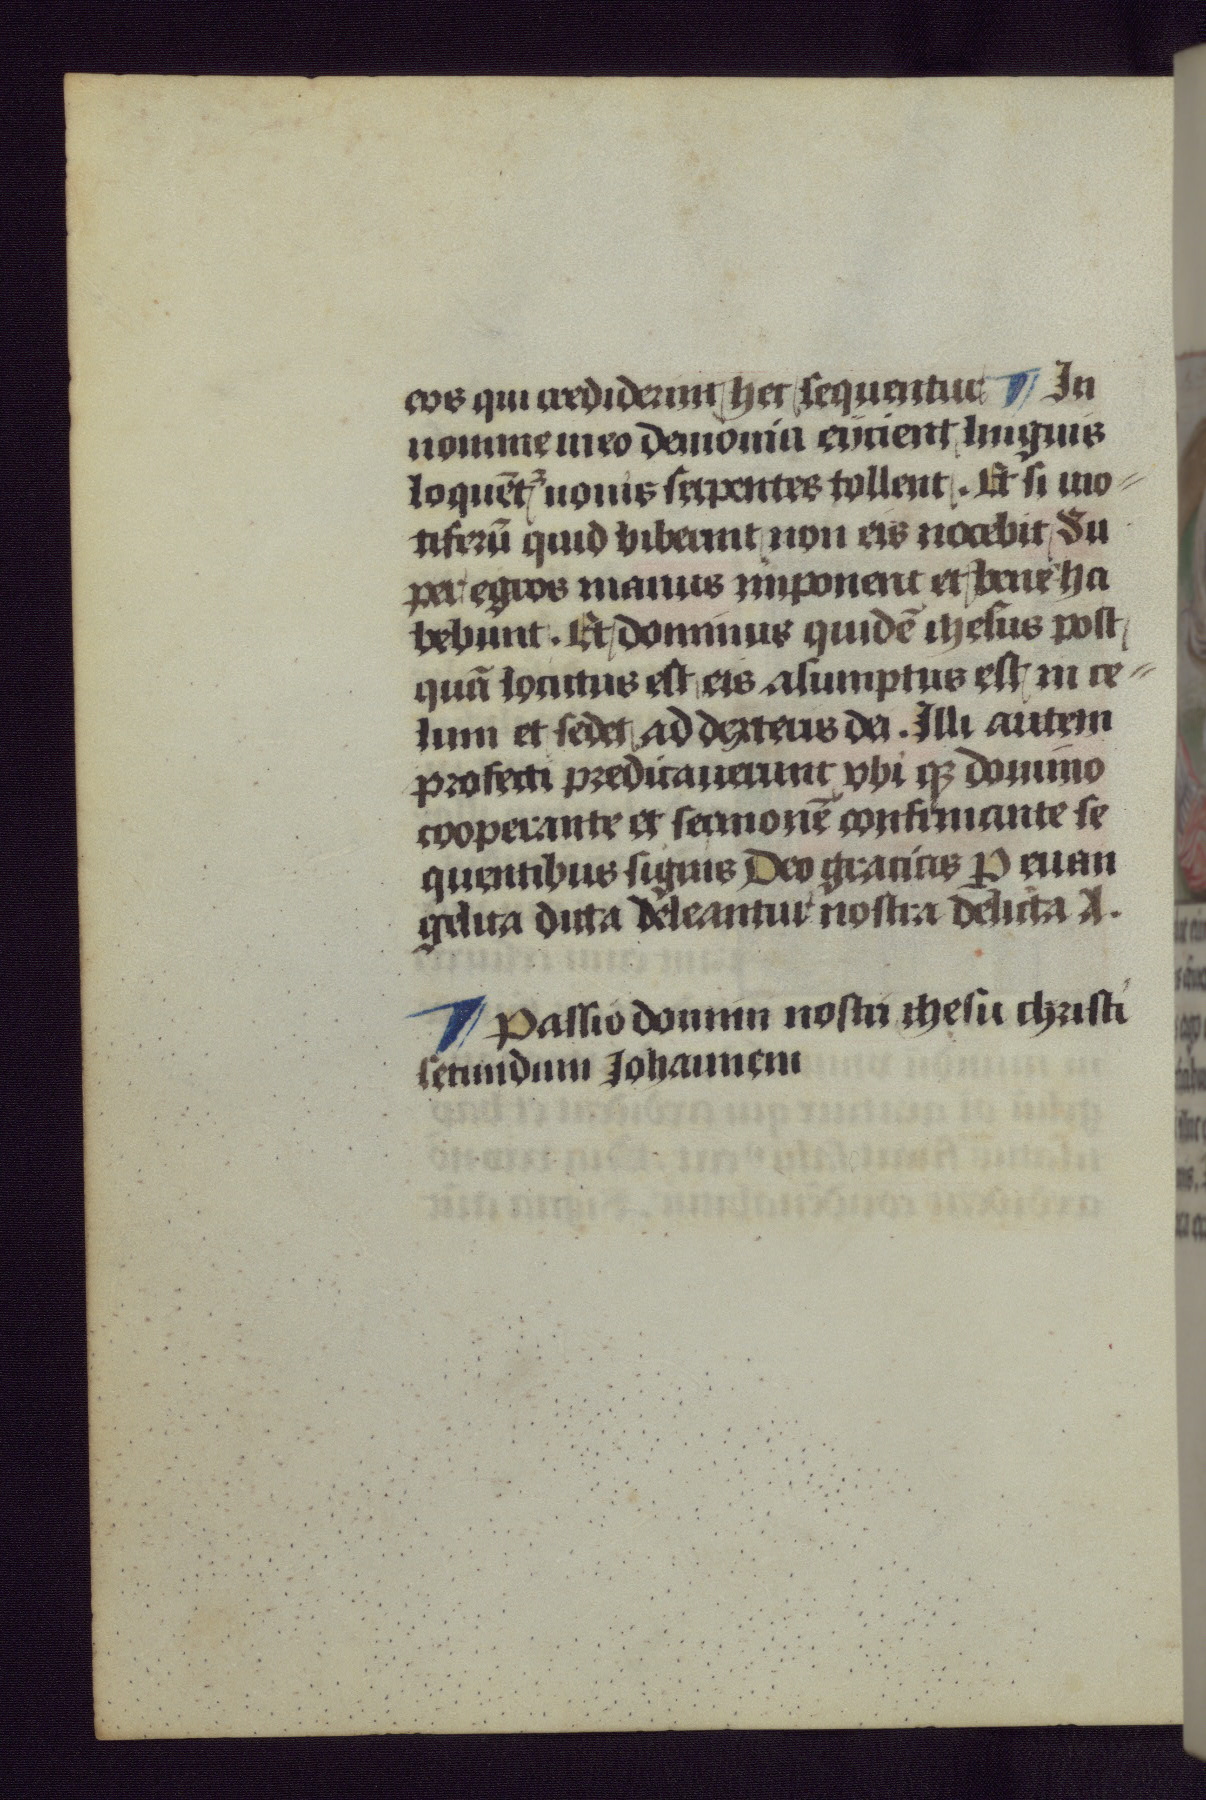 eos qui crediderint hec sequentur ¶ In
nomine meo demonia eijcient linguis
loquēt᷑ nouis serpentes tollent. Et si mo-
tiferū quid biberint non eis nocebit Su
per egros manus imponent et bene ha
bebunt. Et dominus quidē ihesus post
quā locutus est eis asumptus est in ce-
lum et sedet ad dexteris dei. Illi autem
profecti predicauerunt vbi qꝫ domino
cooperante et sermonē confirmante se
quentibus signis Deo gracias P euan
gelica dicta deleantur nostra delicta A.
¶ Passio domini nostri ihesu christi
secundum Johannem